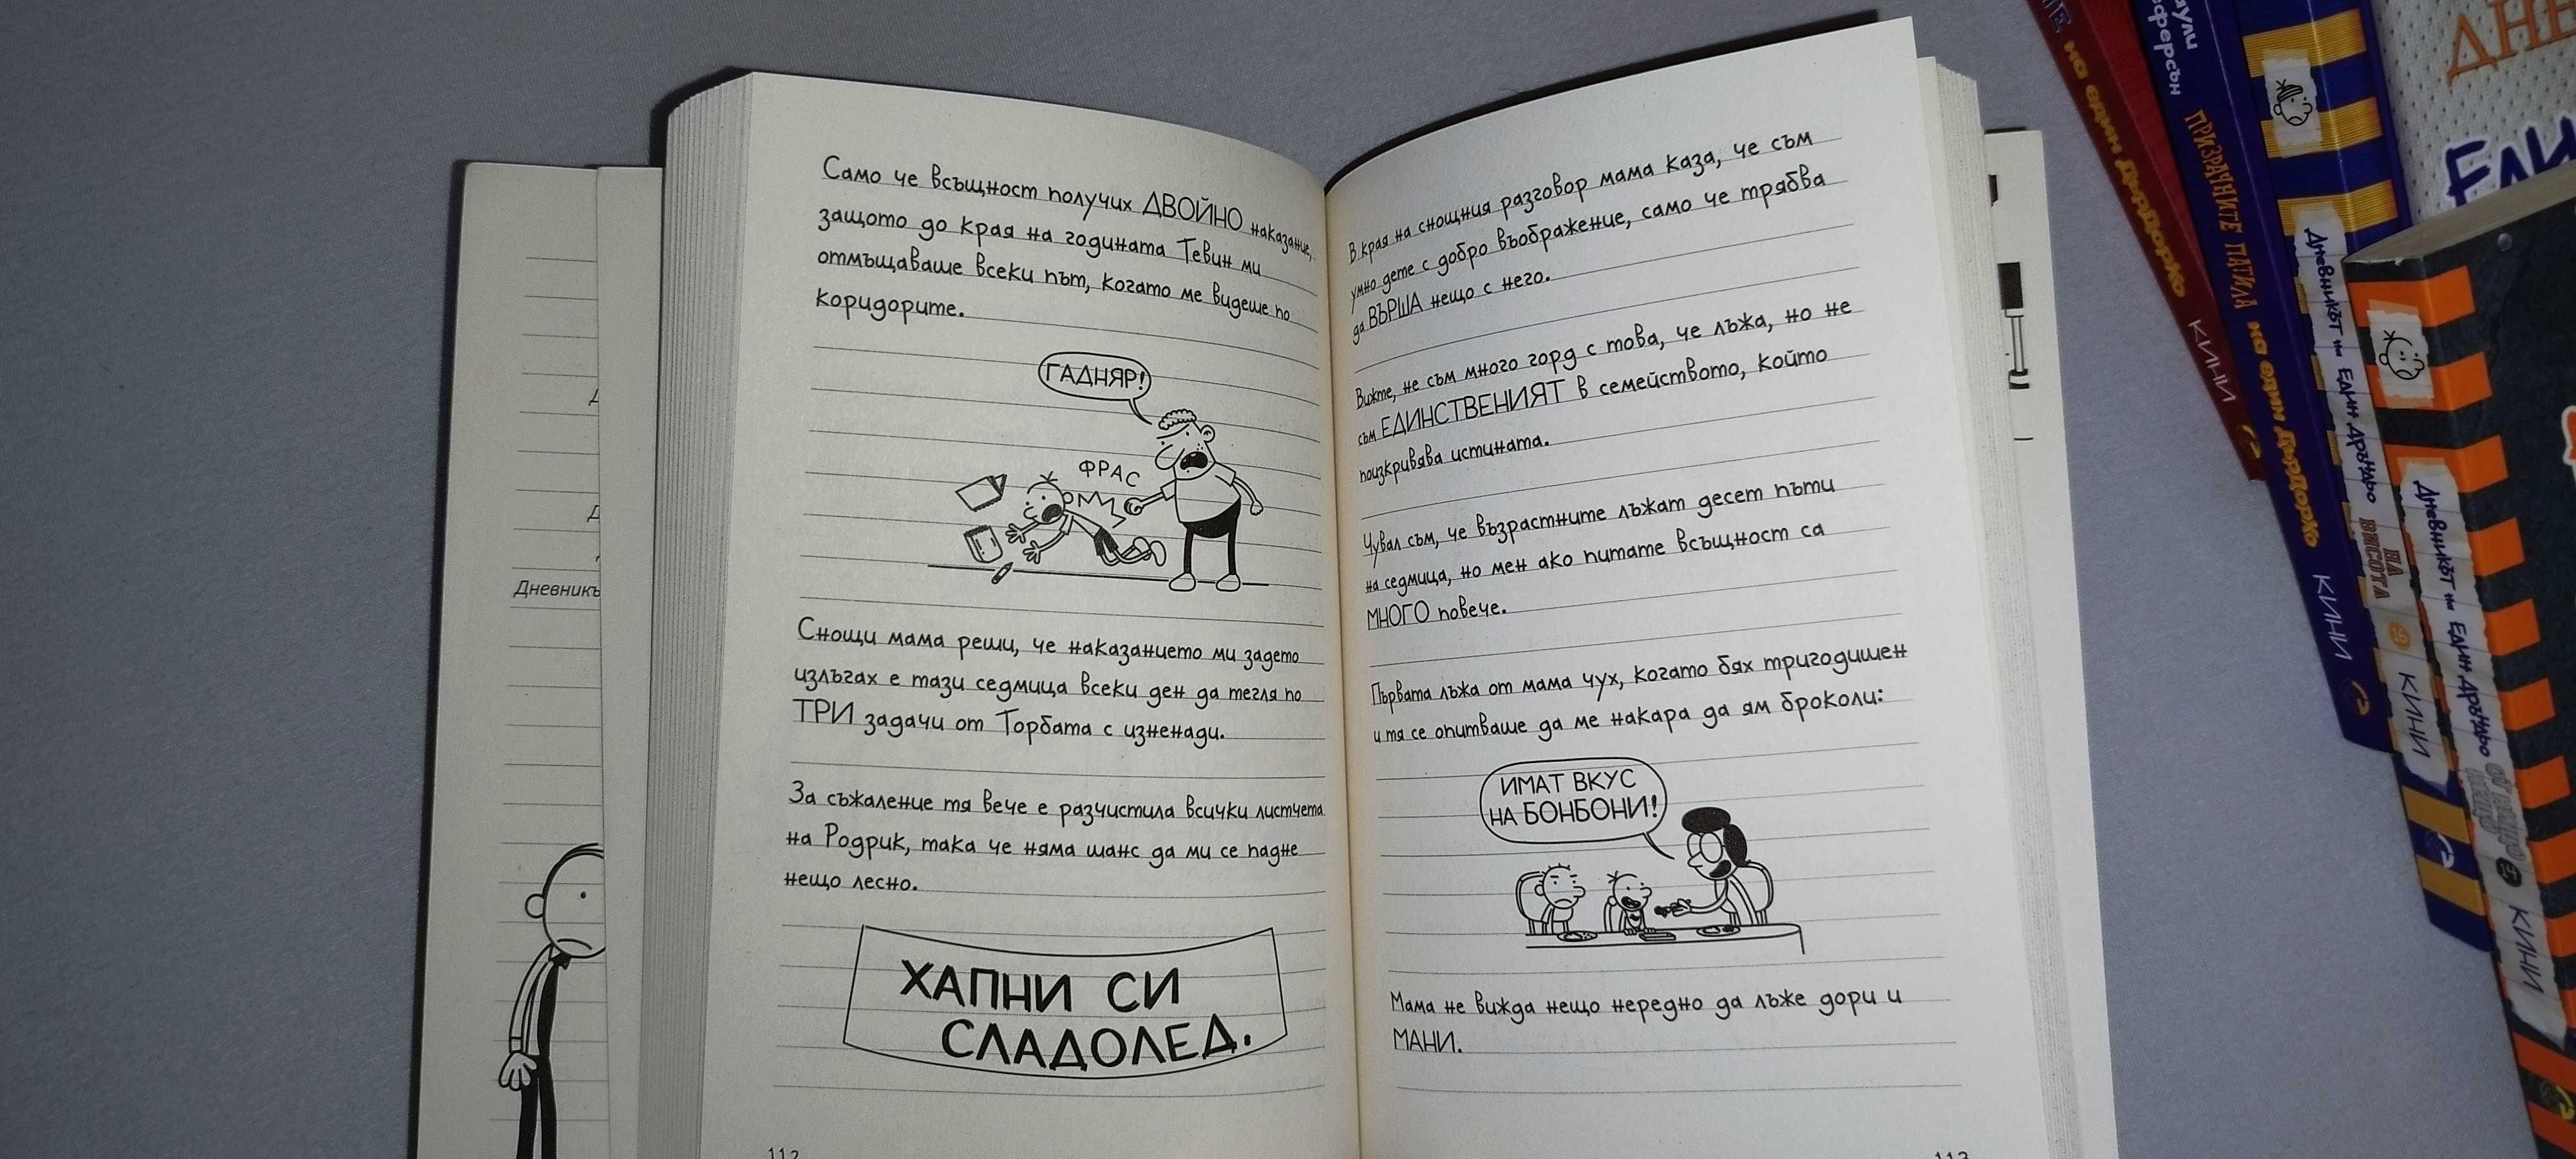 Само че всъщност получих ДВОЙНО наказание,
защото до края на годината Тевин ми
отмъщаваше всеки път, когато ме видеше по
коридорите.
ГАДНЯР!
ФРАС
Снощи мама реши, че наказанието ми задето
излъгах е тази седмица всеки ден да тегля по
ТРИ задачи от Торбата с изненади.
За съжаление тя вече е разчистила всички листчета
на Родрик, така че няма шанс да ми се падне
нещо лесно.
ХАПНИ СИ
СЛАДОЛЕД.
112
В края на снощния разговор мама каза, че съм
умно дете с добро въображение, само че трябва
да ВЪРША нещо с него.
Вижте, не съм много горд с това, че лъжа, но не
съм ЕДИНСТВЕНИЯТ в семейството, който
поизкривява истината.
Чувал съм, че възрастните лъжат десет пъти
на седмица, но мен ако питате всъщност са
МНОГО повече.
Първата лъжа от мама чух, когато бях тригодишен
и тя се опитваше да ме накара да ям броколи:
ИМАТ ВКУС
НА БОНБОНИ!
Мама не вижда нещо нередно да лъже дори и
МАНИ.
113
Дневникъ
на един Дърдорко КИНИ
ПРИЗРАЧНИТЕ ПАТИЛА на един Дърдорко КИНИ
Дневникът на Един Дръндьо НА ВИСОТА КИНИ
Дневникът на Един Дръндьо КИНИ